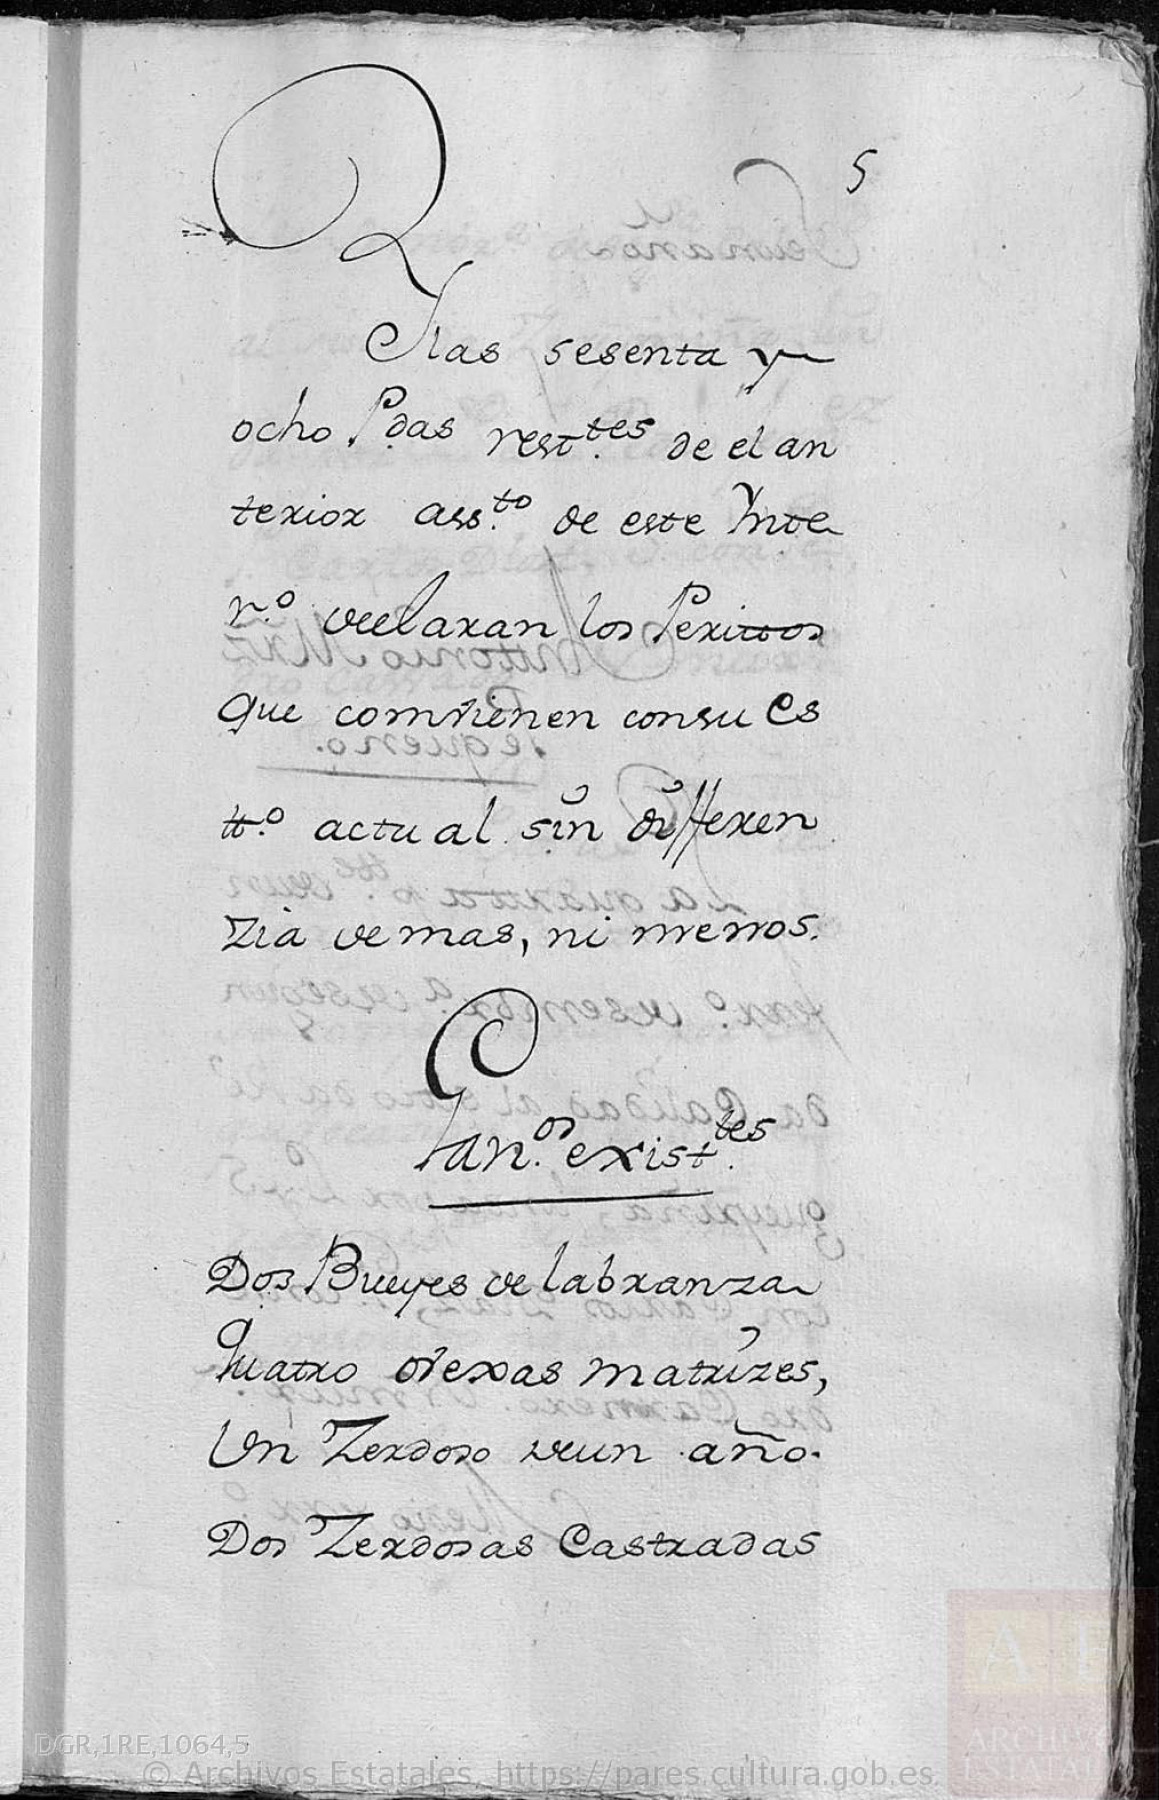 5
Y las sesenta y
ocho Pdas restt.tes de el an
terior ass.to de este Ynte
r.o declaran los Perittos
que comvienen consu es
tt.o actual sin differen
zia de mas, ni menos.
Gan.os exist.tes
Dos Bueyes de labranza
Quatro ovexas matrizes,
Un Zerdoso deun año.
Dos Zerdosas Castradas
DGR,1RE,1064,5
© Archivos Estatales, https://pares.cultura.gob.es
ARCHIVOS
ESTATALES